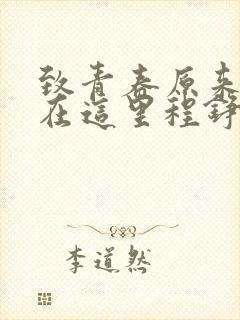 致青春原来
在這里程錚
李道然